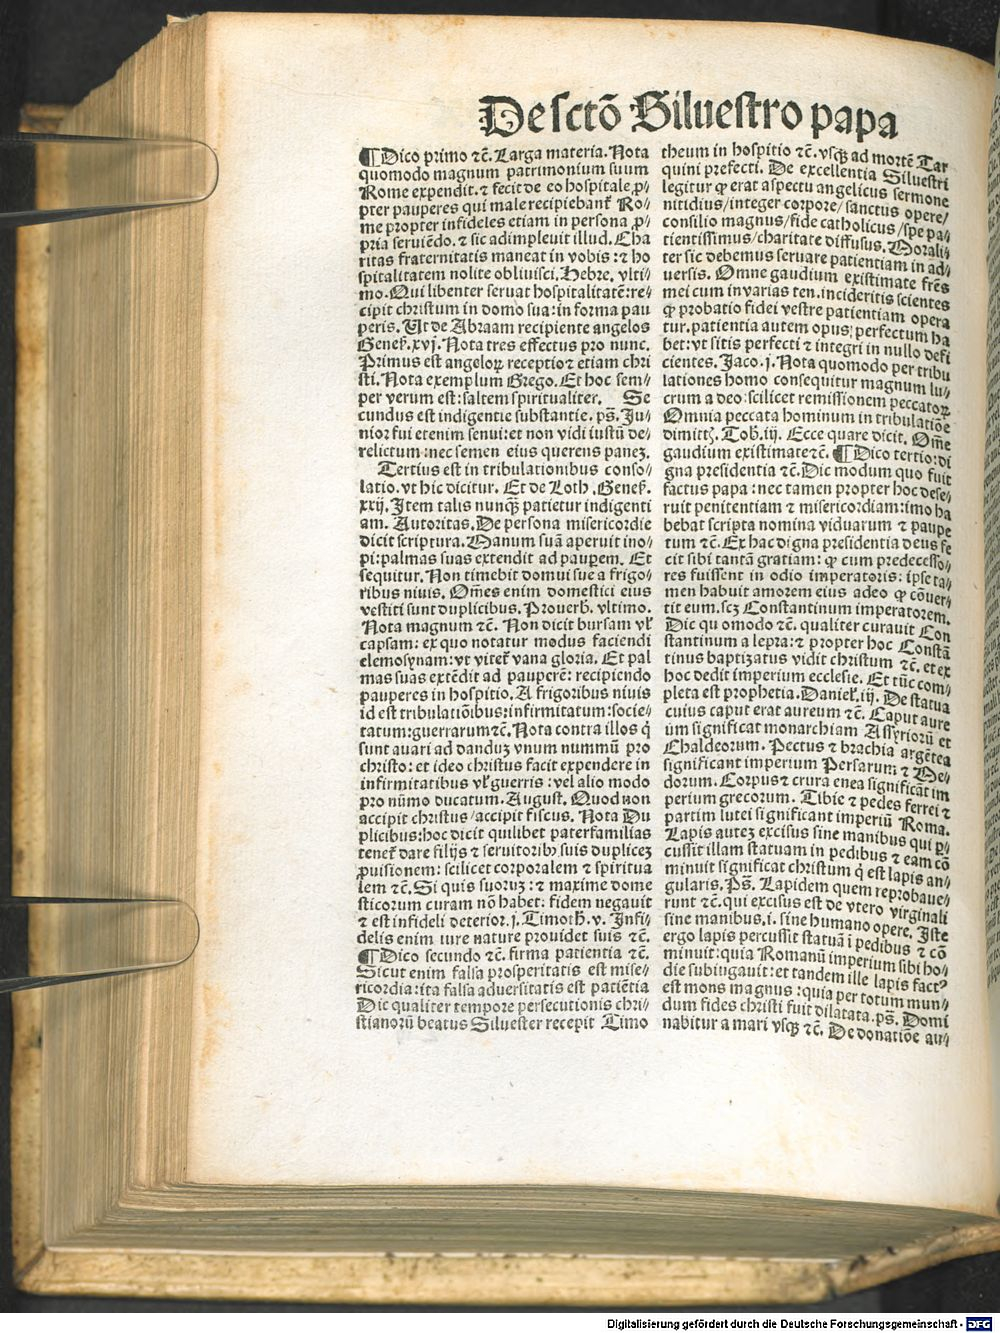 De sctō Siluestro papa
¶ Dico primo ⁊c̄. Larga materia. Nota
quomodo magnum patrimonium suum
Rome expendit. ⁊ fecit de eo hospitale ꝓ⸗
pter pauperes qui male recipiebant̃ Ro⸗
me propter infideles etiam in persona ꝓ⸗
pria seruiēdo. ⁊ sic adimpleuit illud. Cha
ritas fraternitatis maneat in vobis: ⁊ ho
spitalitatem nolite obliuisci. Hebre. vlti⸗
mo. Qui libenter seruat hospitalitatē: re⸗
cipit christum in domo sua: in forma pau
peris. Ut de Abraam recipiente angelos
Geneß. xvj. Nota tres effectus pro nunc.
Primus est angeloꝝ receptio ⁊ etiam chri
sti. Nota exemplum Grego. Et hoc sem⸗
per verum est: saltem spiritualiter. Se
cundus est indigentie substantie. ps̄. Ju⸗
nior fui etenim senui: et non vidi iustū de⸗
relictum: nec semen eius querens paneꝫ.
Tertius est in tribulationibus conso⸗
latio. vt hic dicitur. Et de Loth. Geneß.
xxij. Item talis nunqꝫ patietur indigenti
am. Autoritas. De persona misericordie
dicit scriptura. Manum suā aperuit ino⸗
pi: palmas suas extendit ad pauꝑem. Et
sequitur. Non timebit domui sue a frigo⸗
ribus niuis. Om̄es enim domestici eius
vestiti sunt duplicibus. Prouerb̄. vltimo.
Nota magnum ⁊c̄. Non dicit bursam vł
capsam: ex quo notatur modus faciendi
elemosynam: vt vitet̃ vana gloria. Et pal
mas suas extēdit ad pauperē: recipiendo
pauperes in hospitio. A frigoribus niuis
id est tribulatiōibus: infirmitatum: socie⸗
tatum: guerrarum ⁊c̄. Nota contra illos q̇
sunt auari ad danduꝫ vnum nummū pro
christo: et ideo christus facit expendere in
infirmitatibus vł guerris: vel alio modo
pro nūmo ducatum. August. Quod non
accipit christus/ accipit fiscus. Nota Du
plicibus: hoc dicit quilibet paterfamilias
tenet̃ dare filijs ⁊ seruitorib⸗ suis dupliceꝫ
ꝓuisionem: scilicet corporalem ⁊ spiritua
lem ⁊c̄. Si quis suoruꝫ: ⁊ maxime dome
sticorum curam nō habet: fidem negauit
⁊ est infideli deterior. j. Timoth̄. v. Infi⸗
delis enim iure nature prouidet suis ⁊c̄.
¶ Dico secundo ⁊c̄. firma patientia ⁊c̄.
Sicut enim falsa prosperitatis est mise⸗
ricordia: ita falsa aduersitatis est patiētia
Dic qualiter tempore persecutionis chri⸗
stianorū beatus Siluester recepit Timo
theum in hospitio ⁊c̄. vsqꝫ ad mortē Tar
quini prefecti. De excellentia Siluestri
legitur ꝙ erat aspectu angelicus sermone
nitidius/ integer corpore/ sanctus opere/
consilio magnus/ fide catholicus/ spe pa⸗
tientissimus/ charitate diffusus. Morali⸗
ter sic debemus seruare patientiam in ad⸗
uersis. Omne gaudium existimate fr̄es
mei cum in varias ten. incideritis scientes
ꝙ probatio fidei vestre patientiam opera
tur. patientia autem opus perfectum ha
bet: vt sitis perfecti ⁊ integri in nullo defi
cientes. Jaco. j. Nota quomodo per tribu
lationes homo consequitur magnum lu⸗
crum a deo: scilicet remissionem peccatoꝝ
Omnia peccata hominum in tribulatiōe
dimittꝫ. Tob̄. iij. Ecce quare dicit. Om̄e
gaudium existimate ⁊c̄. ¶ Dico tertio: di
gna presidentia ⁊c̄. Dic modum quo fuit
factus papa: nec tamen propter hoc dese⸗
ruit penitentiam ⁊ misericordiam: imo ha
bebat scripta nomina viduarum ⁊ paupe
rum ⁊c̄. Ex hac digna presidentia deus fe
cit sibi tantā gratiam: ꝙ cum predecesso⸗
res fuissent in odio imperatoris: ipse ta⸗
men habuit amorem eius adeo ꝙ cōuer⸗
tit eum. scꝫ Constantinum imperatorem.
Dic quomodo ⁊c̄. qualiter curauit Con
stantinum a lepra: ⁊ propter hoc Constā
tinus baptizatus vidit christum ⁊c̄. et ex
hoc dedit imperium ecclesie. Et tūc com⸗
pleta est prophetia. Danieł. iij. De statua
cuius caput erat aureum ⁊c̄. Caput aure
um significat monarchiam Assyriorū et
Chaldeorum. Pectus ⁊ brachia argētea
significant imperium Persarum ⁊ Me⸗
dorum. Corpus ⁊ crura enea significāt im
perium grecorum. Tibie ⁊ pedes ferrei ⁊
partim lutei significant imperiū Roma.
Lapis auteꝫ excisus sine manibus qui ꝑ⸗
cussit illam statuam in pedibus ⁊ eam cō
minuit significat christum q̇ est lapis an⸗
gularis. Ps̄. Lapidem quem reprobaue⸗
runt ⁊c̄. qui excisus est de vtero virginali
sine manibus. i. sine humano opere. Iste
ergo lapis percussit statuā ī pedibus ⁊ cō
minuit: quia Romanū imperium sibi ho⸗
die subiugauit: et tandem ille lapis fact⁹
est mons magnus: quia per totum mun⸗
dum fides christi fuit dilatata. ps̄. Domi
nabitur a mari vsqꝫ ⁊c̄. De donatiōe au⸗
Digitalisierung gefördert durch die Deutsche Forschungsgemeinschaft - DFG